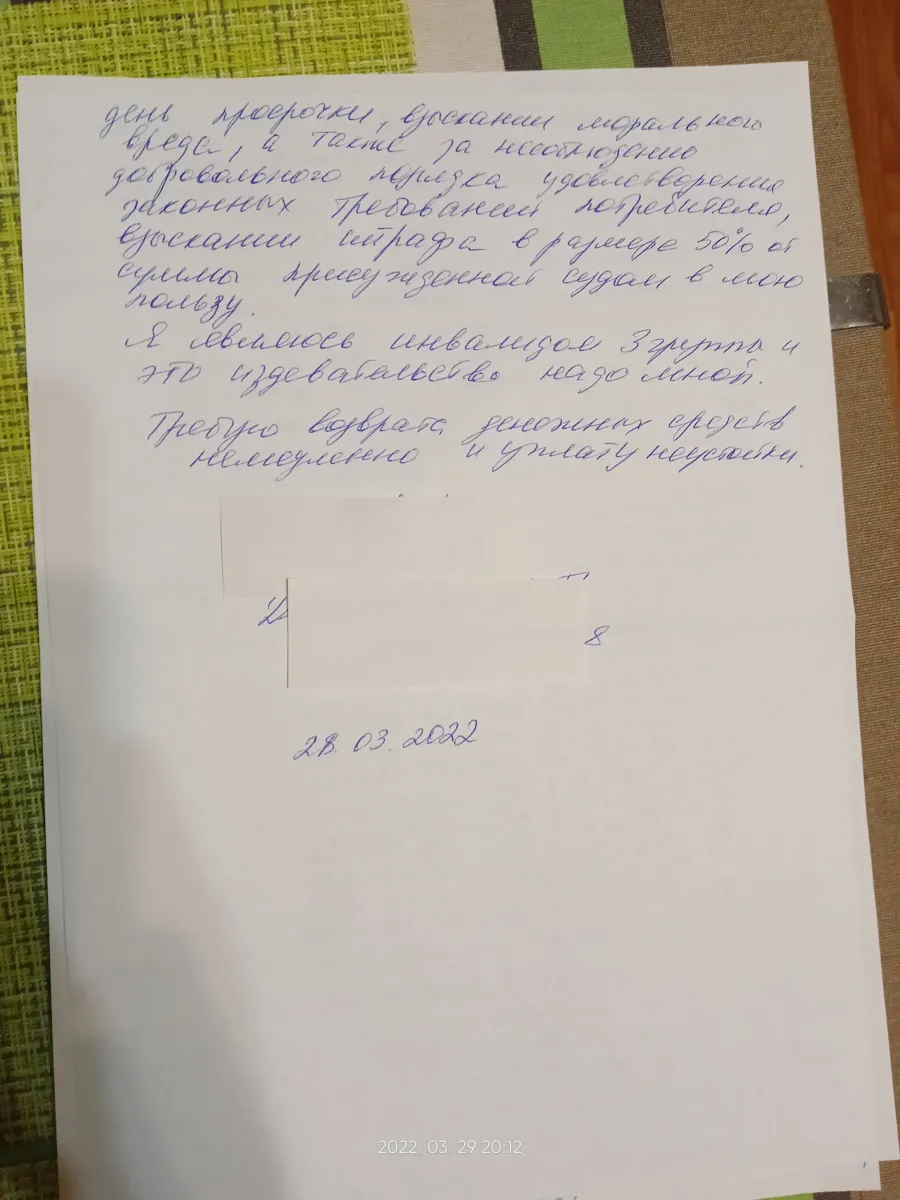 день просрочки, взыскании морального
вреда, а также за несоблюдение
добровольного порядка удовлетворения
законных требований потребителя,
взыскании штрафа в размере 50% от
суммы присужденной судом в мою
пользу.
Я являюсь инвалидом 3 группы и
это издевательство надо мной.
Требую возврата денежных средств
немедленно и уплату неустойки.
8
28.03.2022
2022/03/29 20:12